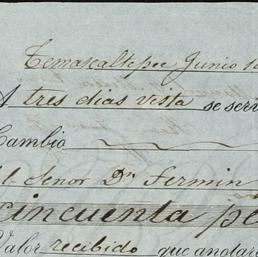 Temascaltepec Junio 1
A tres dias vista se serv
Cambio
al Senor Dn Fermin
cincuenta pe
Valor recibido que anotar